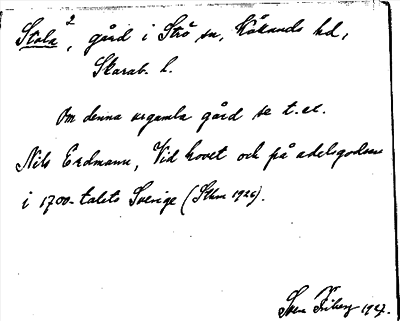 Stola 2, gård i Strö sn, Kåkands hd,
Skarab. l.
Om denna urgamla gård se t. ex.
Nils Erdmann, Vid hovet och på adelsgodsen
i 1700-talets Sverige (Sthm 1926).
Sven Friberg 1927.